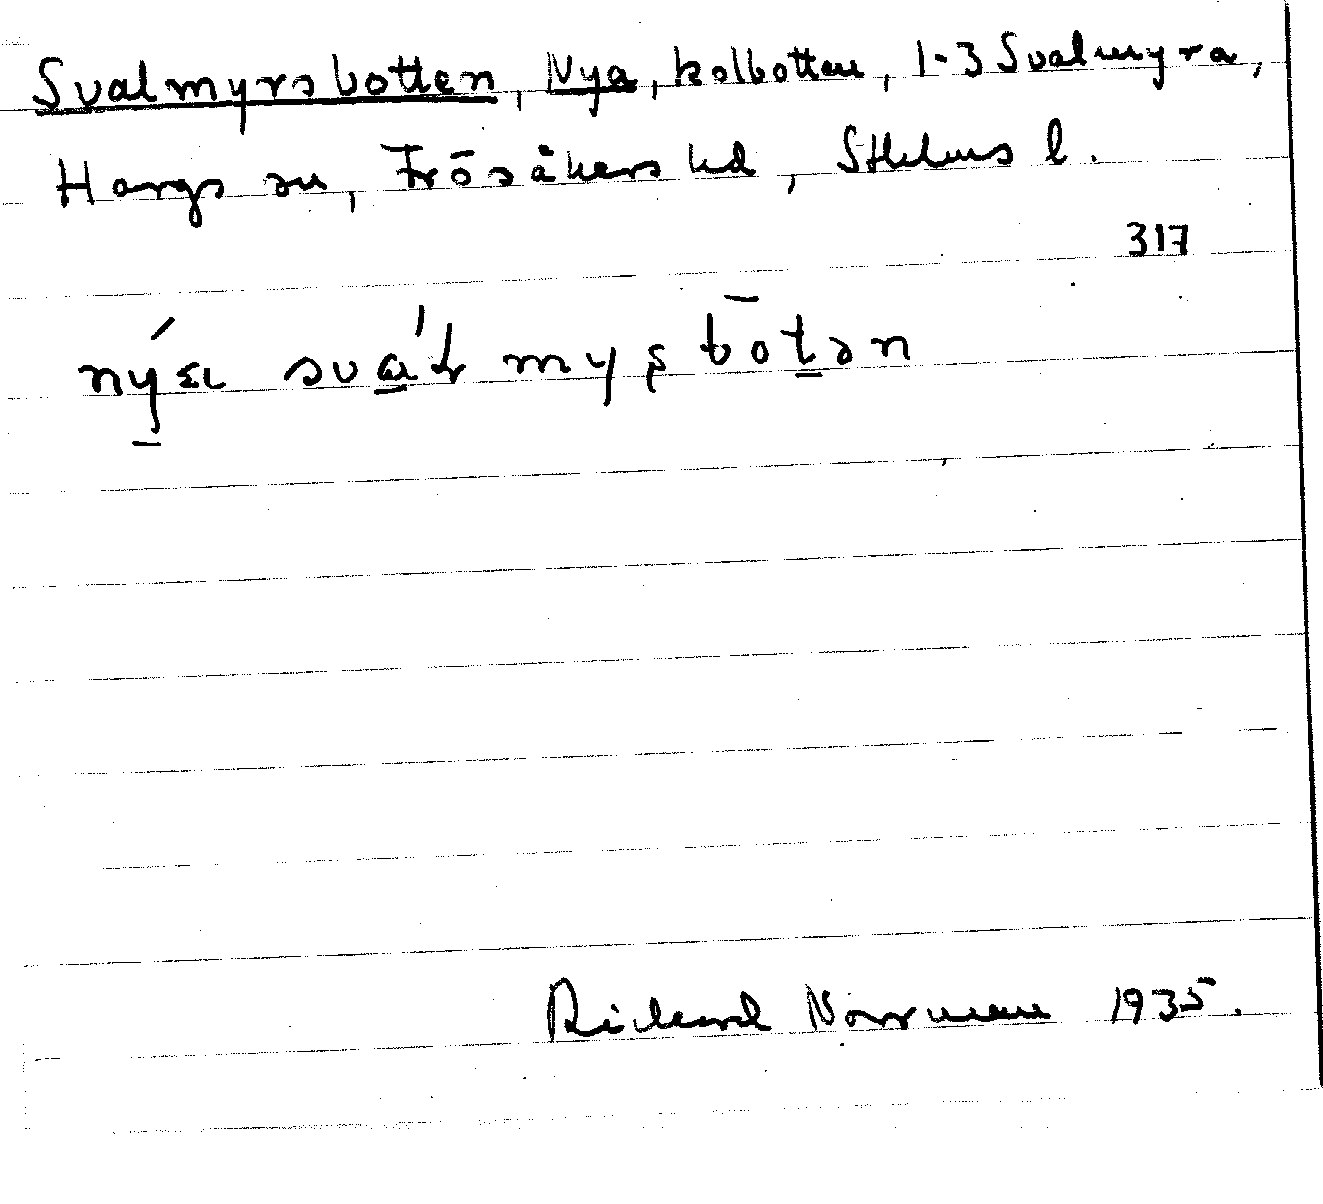 Svalmyrsbotten, Nya, kolbotten, 1-3 Svalmyra,
Hargs sn, Frösåkers hd, Sthlms l.
317
Rickard Norrman 1935.